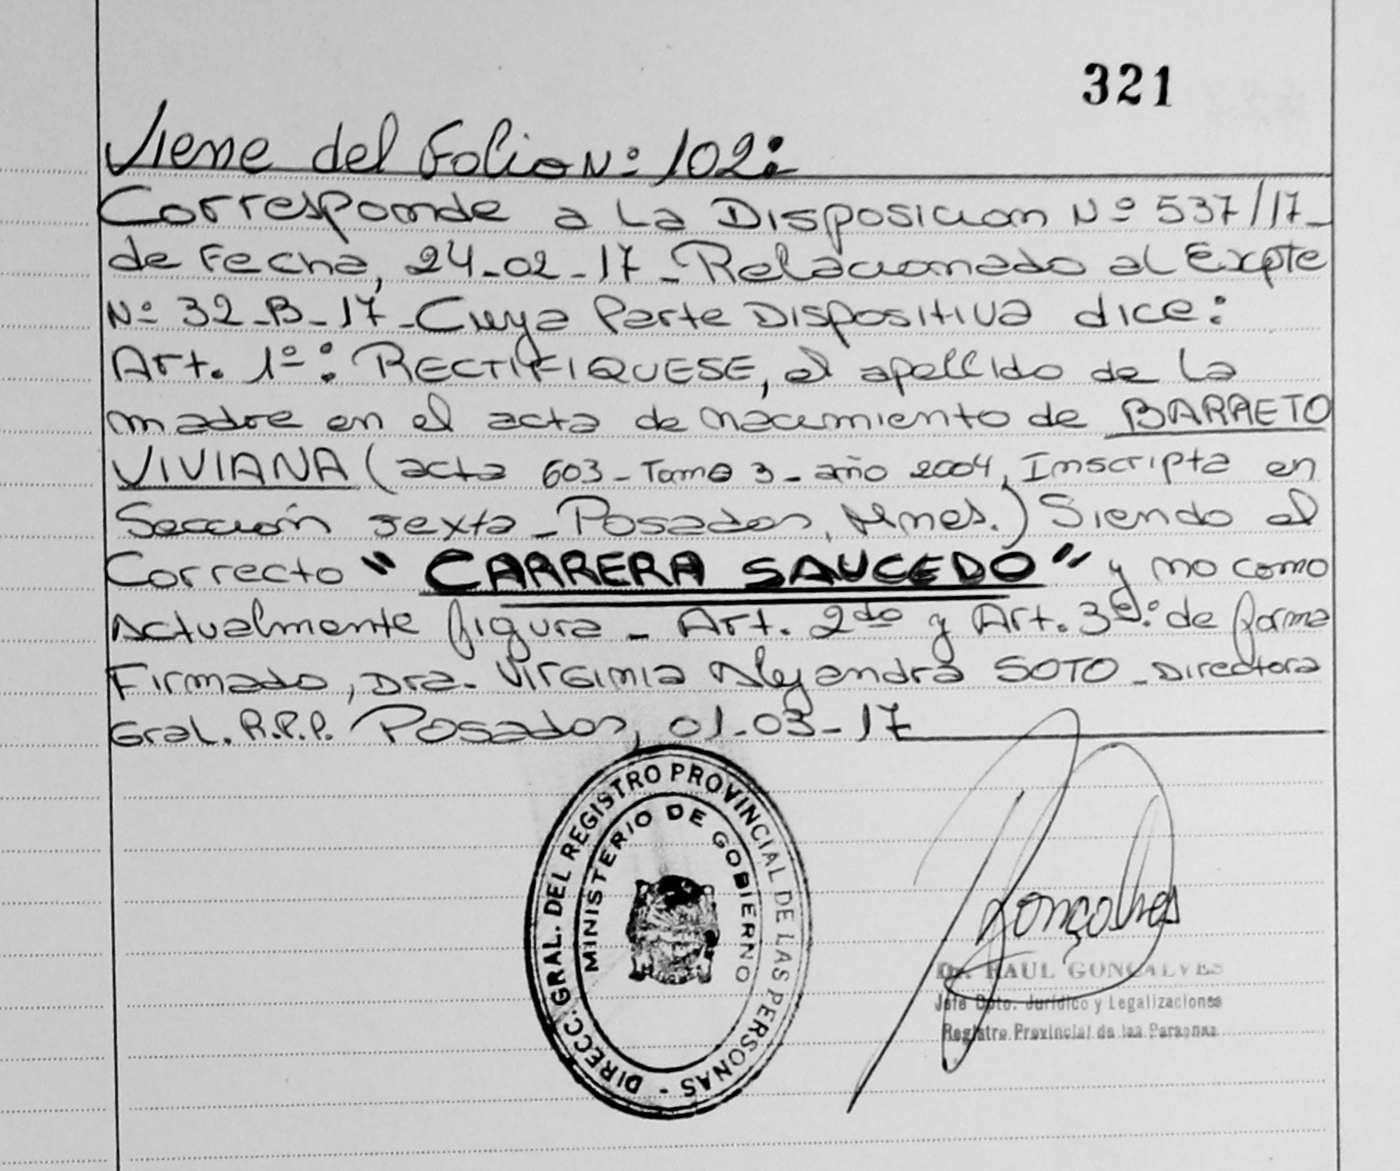 321
Viene del Folio Nº 102:
Corresponde a La Disposicion Nº 537/17-
de Fecha, 24-02-17-Relacionado al Expte
Nº 32-B-17-Cuya Parte Dispositiva dice:
Art. 1º: RECTIFIQUESE, el apellido de La
madre en el acta de nacimiento de BARRETO
VIVIANA (acta 603-Tomo 3-año 2004, Inscripta en
Sección sexta-Posadas, Mnes.) Siendo el
Correcto "CARRERA SAUCEDO" y no como
Actualmente figura - Art. 2do y Art. 3º: de forma
Firmado, Dra. Virginia Alejandra SOTO-Directora
Gral. R.P.P. Posadas, 01-03-17
DIRECC. GRAL. DEL REGISTRO PROVINCIAL DE LAS PERSONAS -
MINISTERIO DE GOBIERNO
Gonçalves
Dr. RAUL GONCALVES
Jefe Dpto. Jurídico y Legalizaciones
Registro Provincial de las Personas